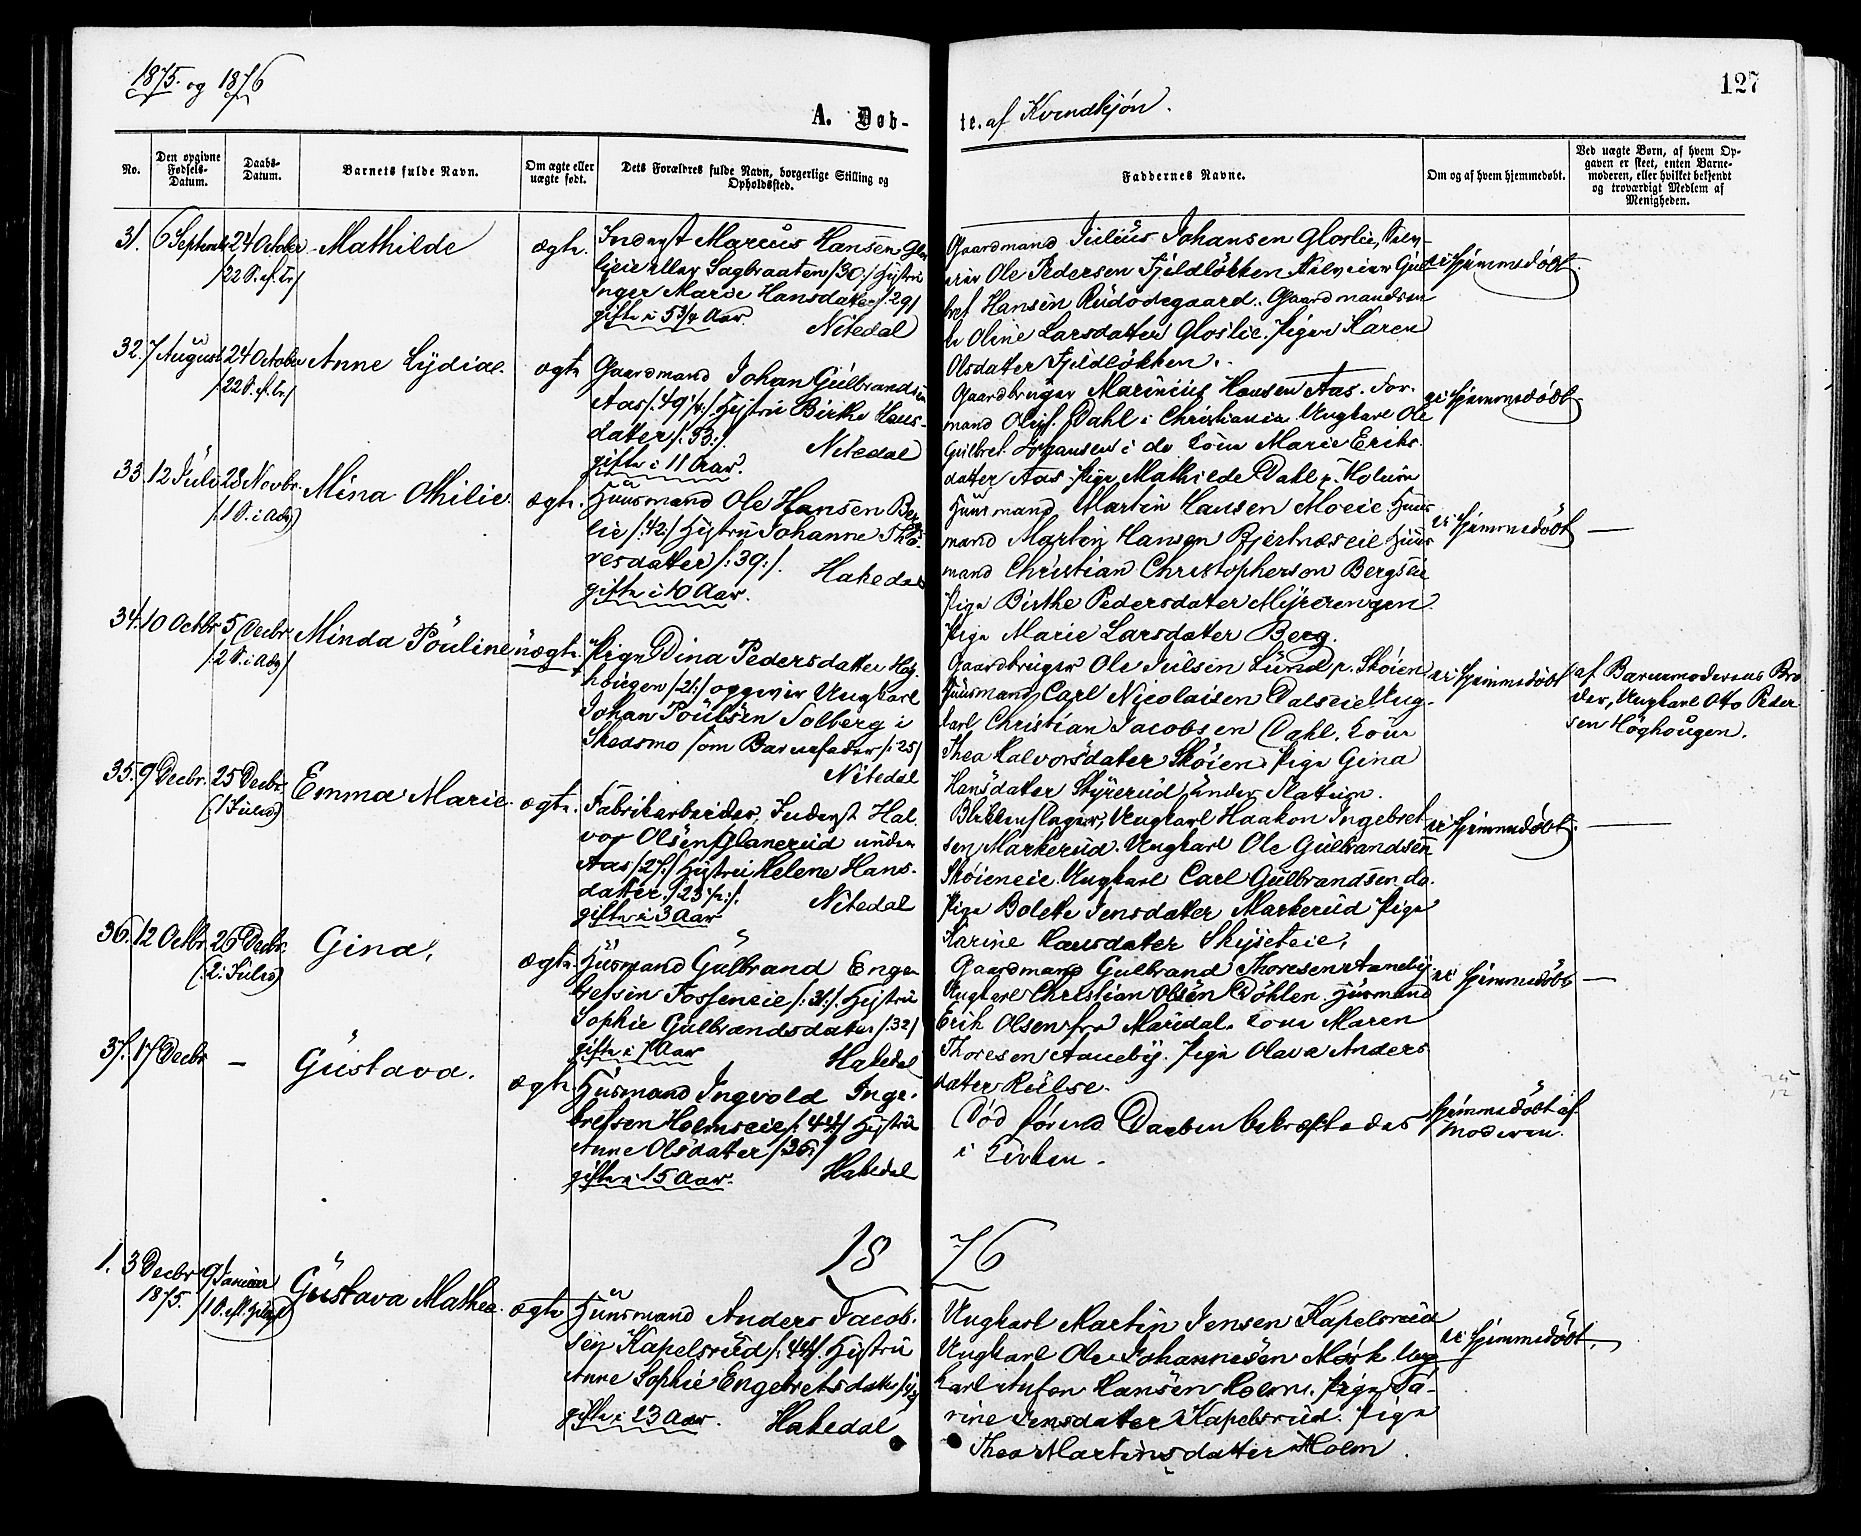 1875. og 1876
127
A. Døb-
te. af Kvindkjön.
No.
Den opgivne Fødsels-Datum.
Daabs-Datum.
Barnets fulde Navn.
Om ægte eller uægte født.
Dets Forældres fulde Navn, borgerlige Stilling og Opholdssted.
Faddernes Navne.
Om og af hvem hjemmedøbt.
Ved uægte Børn, af hvem Op-
gaven er skeet, enten Barne-
moderen, eller hvilket bekjendt
og troværdigt Medlem af
Menigheden.
31.
6 Septembr
24 October
/22 S. ef. Tr/
Mathilde
ægte.
Inderst Marcus Hansen Glos
lieie eller Sagbraaten /30/ Hustru
Inger Marie Hansdatter /29/
gifte i 5 3/4 Aar.
Nitedal
Gaardmand Julius Johansen Gloslie, Selv-
eier Ole Pedersen Fjeldlökken Selveier Gul
bret Hansen Rudodegaard. Gaardmandsen
ke Oline Larsdatter Gloslie. Pigen Karen
Olsdatter Fjeldlökken.
ei hjemmedöbt.
32.
7 August
24 October
/22 S. ef. Tr/
Anne Lydia
ægte
Gaardmand Johan Gulbrandsen
Aas /:49 1/4:/ Hustru Birthe Hans-
datter /:33:/.
gifte i 11 Aar.
Nitedal
Gaardbruger Marinius Hansen Aas. For-
mand Olaf Dahl i Christiania Ungkarl Ole
Gulbr. Johansen i do Kone Marie Eriks
datter Aas. Pige Mathilde Dahl p. Holum
ei hjemmedöbt.
33.
12 Juli
28 Novbr.
/:1 S. i Adv)
Mina Othilie.
ægte.
Huusmand Ole Hansen Berg
lie /:42:/ Hustru Johanne Tho-
resdatter /:39:/.
gifte i 10 Aar.
Hakedal
Huusmand Martin Hansen Moeie. Huus
mand Martin Hansen Bjertnæseie Huus
mand Christian Christopherson Bergseie
Pige Birthe Pedersdatter Myrerengen
Pige Marie Larsdatter Berg.
ei hjemmedöbt
34.
10 Octbr
5 Decbr.
/:2 S. i Adv/
Minda Pouline
uægte.
Pige Dina Pedersdatter Hög
hougen /21/ opgiver Ungkarl
Johan Poulsen Solberg i
Skedsmo som Barnefader /:25/
Nitedal
Gaardbruger Ole Julsen Lund p. Skøien
Huusmand Carl Nicolaisen Dalseie Ung-
karl Christian Jacobsen Dahl. Kone
Thea Halvorsdatter Skøien. Pige Gina
Hansdatter Skyrerud under Slatum.
ei hjemmedöbt
af Barnemoderens Bro
der, Ungkarl Otto Peder
sen Höghougen.
35.
9 Decbr.
25 Decbr.
(1 Juled)
Emma Marie.
ægte.
Fabrikarbeider, Inderst Hal
vor Olsen Glanerud under
Aas /27/ Hustru Helene Hans-
datter /23 1/2:/.
gifte i 3 Aar
Nitedal
Blikkenslager, Ungkarl Haakon Ingebret
sen Markerud. Ungkarl Ole Gulbrandsen
Skøieneie Ungkarl Carl Gulbrandsen do.
Pige Bolette Jensdatter Markerud Pige
Karine Hansdatter Skyseteie.
ei hjemmedöbt.
36.
12 Octbr
26 Decbr.
(2. Juled)
Gina.
ægte.
Husmand Gulbrand Enge-
bretsen Fosseneie /:31:/. Hustru
Sophie Gulbrandsdatter /32/
gifte i 7 Aar
Hakedal
Gaardmand Gulbrand Thoresen Aaneby
Ungkarl Christian Olsen Döhlen. Husmand
Erik Olsen fra Maridal. Kone Maren
Thoresen Aaneby. Pige Olava Anders
datter Rulse.
ei hjemmedöbt
37.
17 Decbr
—
Gustava.
ægte.
Husmand Ingvold Inge-
bretsen Holmseie /:44/ Hustru
Anne Olsdatter /36/
gifte i 15 Aar.
Hakedal
Död förend Daaben bekræftedes
i Kirken.
hjemmedöbt af
Moderen.
25
12
18 76
1.
3 Decbr
1875.
9 Januar
Gustava Mathea.
ægte
Huusmand Anders Jacob-
sen Kapelsrud /:44/. Hustru
Anne Sophie Engebretsdatter
gifte i 23 Aar.
Hakedal
Ungkarl Martin Jensen Kapelsrud
Ungkarl Ole Johannesen Mörk. Ung
karl Anton Hansen Holm. Pige Ka-
rine Jensdatter Kapelsrud. Pige
Thea Martinsdatter Holm.
ei hjemmedöbt.